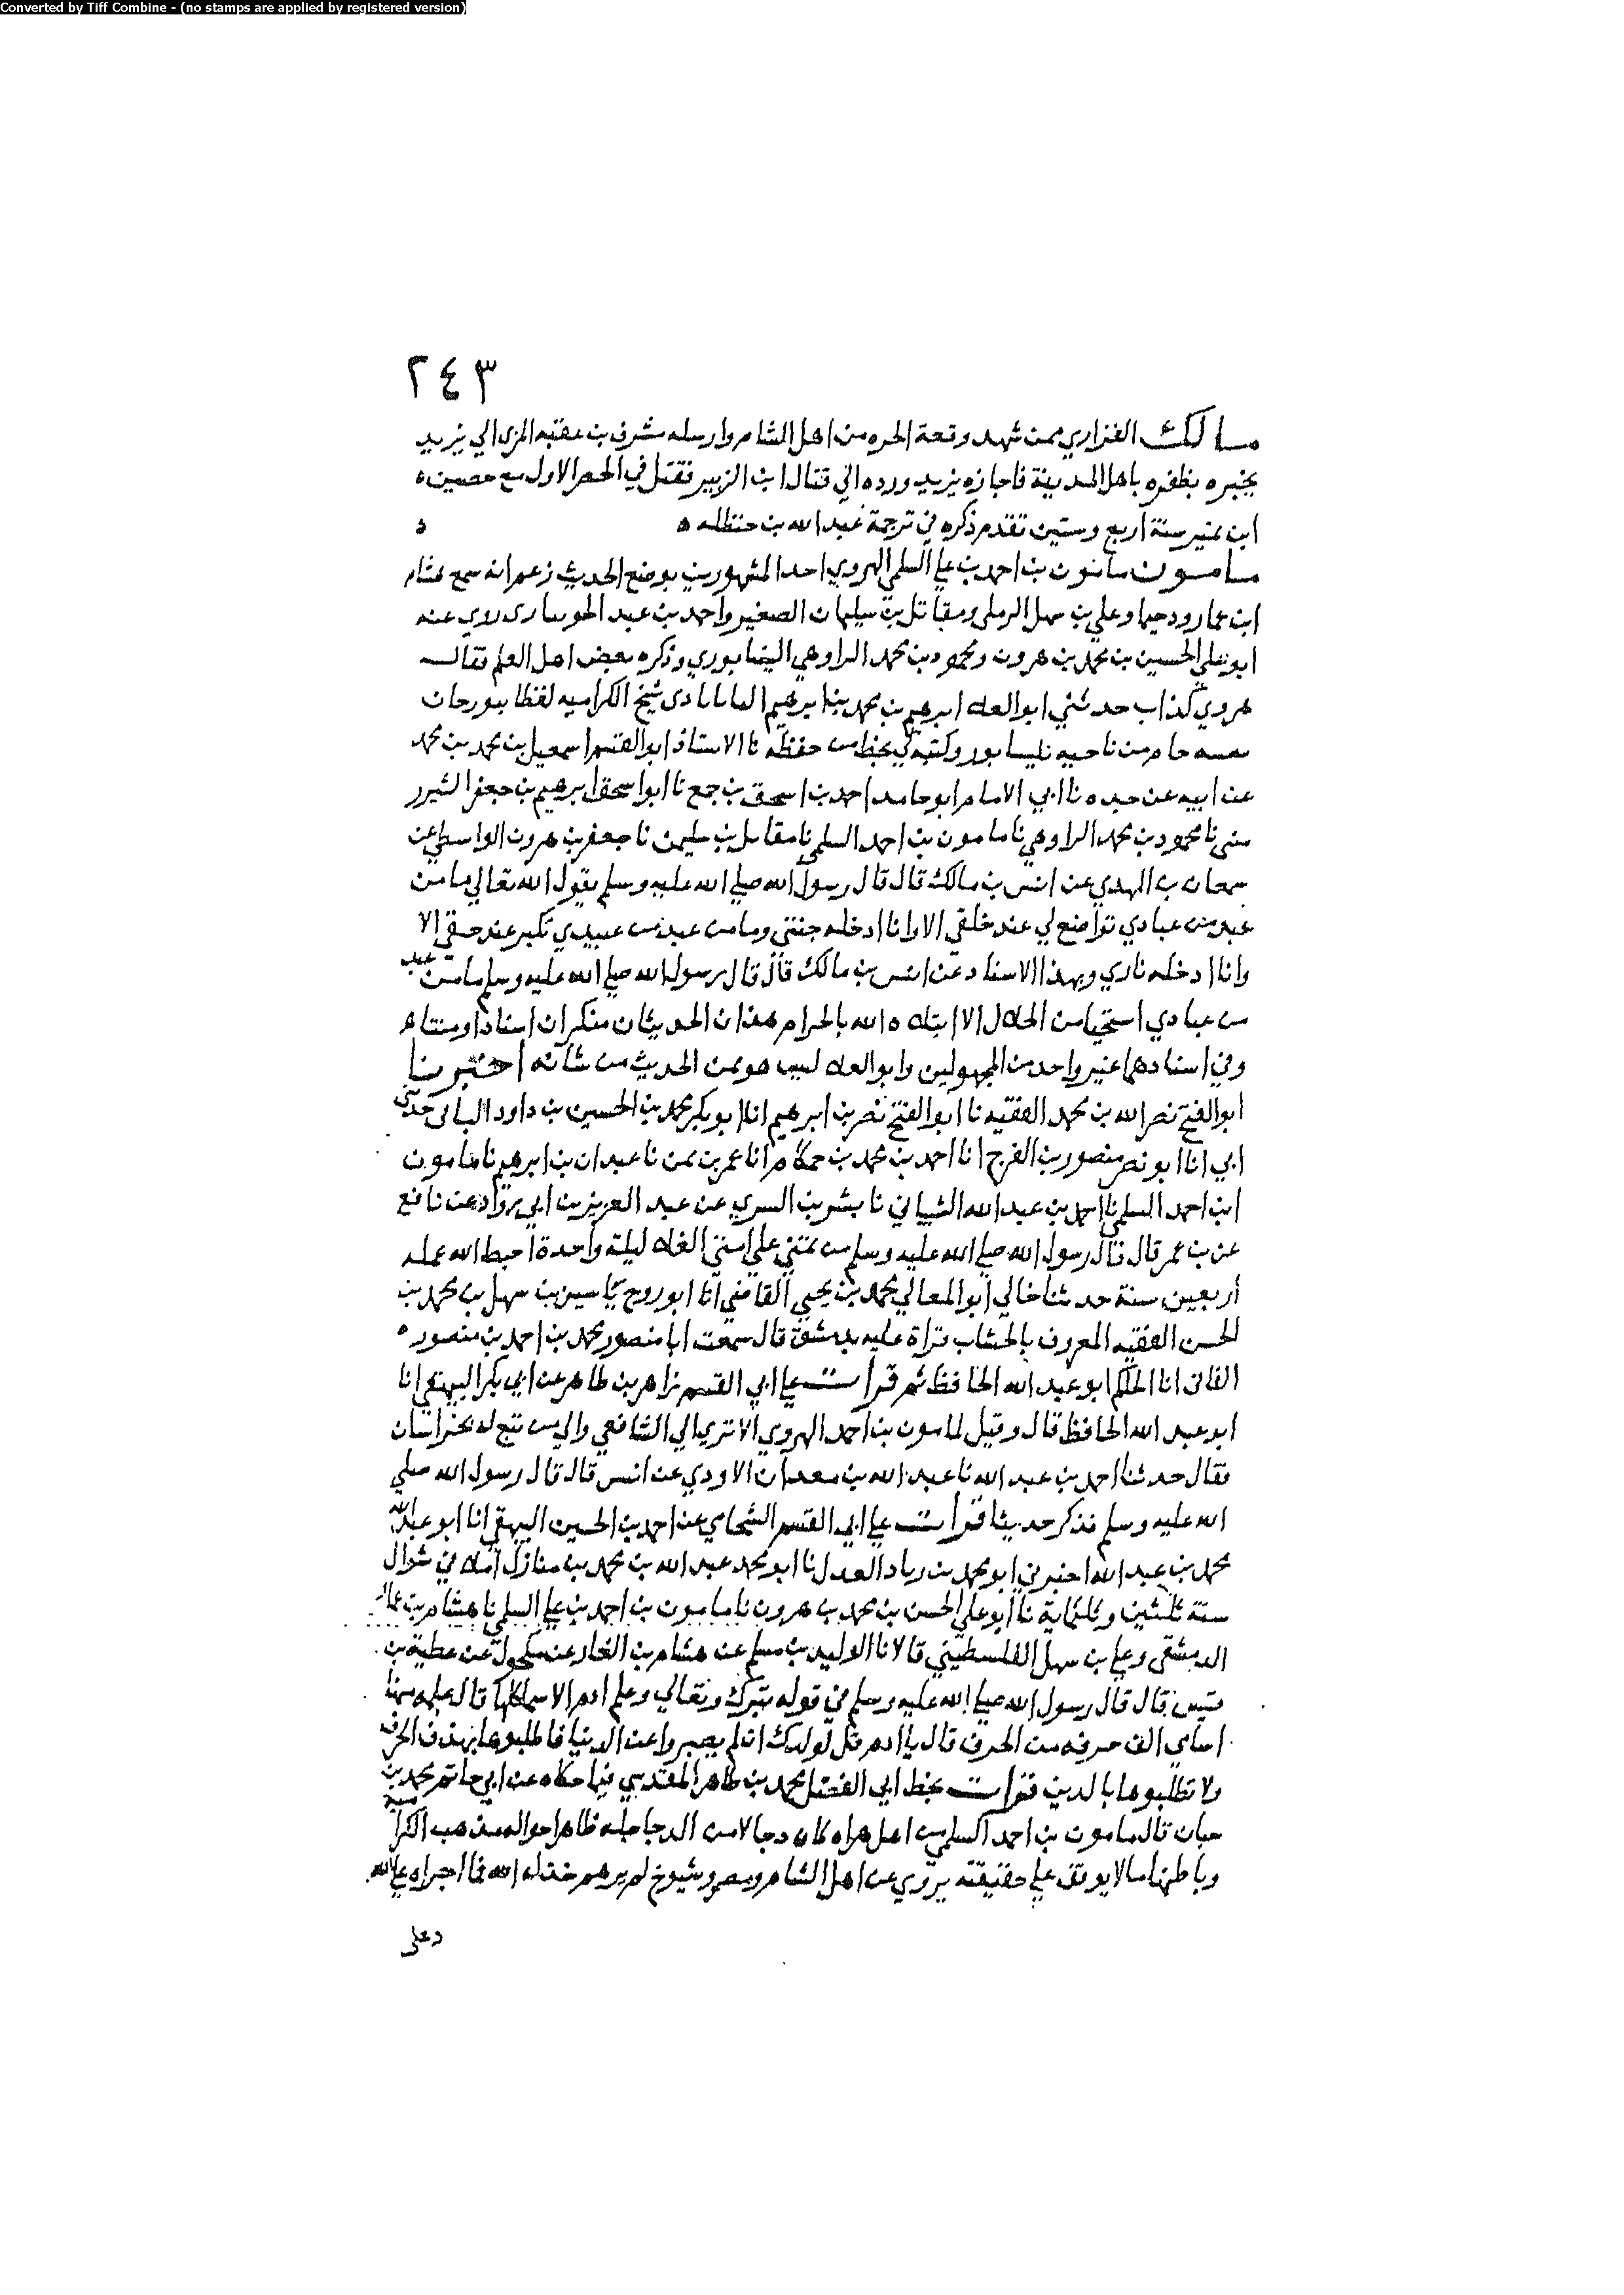 Converted by Tiff Combine - (no stamps are applied by registered version)
٢٤٣
مالك الفزاري ممن شهد وقعة الحره من اهل الشام وارسله مشرف بن عقبه المزي الي يزيد
يخبره بظفره باهل المدينة فاجازه يزيد ورده الي قتال ابن الزبير فقتل في الحصر الاول مع حصين ه
ابن نمير سنة اربع وستين تقدم ذكره في ترجمة عبد الله بن حنظله ه ه
مامون بن احمد بن علي السلمي الهروي احد المشهورين بوضع الحديث زعم انه سمع هشام
ابن عمار ودحيما وعلي بن سهل الرملي ومقاتل بن سليمان الصغير واحمد بن عبد الله روي عنه
ابو علي الحسين بن محمد بن هرون ومحمود بن محمد الراوهي النيسابوري وذكره بعض اهل العلم فقال
هروي كذاب حدثني ابو العلا ابرهيم بن محمد بن ابرهيم شيخ الكراميه لفظا
جام من ناحيه نيسابور وكتبه لي بخط من حفظه نا الاستاذ ابو القسم اسمعيل بن محمد بن محمد
عن ابيه عن جده نا ابي الامام ابو حامد احمد بن اسحق بن جمع نا ابو اسحق ابرهيم بن جعفر
نا محمود بن محمد الراوهي نا مامون بن احمد السلمي نا مقاتل بن سليمن نا جعفر بن هرون الواسطي عن
سمعان بن المهدي عن انس بن مالك قال قال رسول الله صلي الله عليه وسلم يقول الله تعالي ما من
عبد من عبادي تواضع لي عند خلقي الا وانا ادخله جنتي وما من عبد من عبيدي تكبر عند حقي الا
وانا ادخله ناري وبهذا الاسناد عن انس بن مالك قال قال رسول الله صلي الله عليه وسلم ما من عبد
من عبادي استحيا من الحلال الا ابتلاه الله بالحرام هذان الحديثان منكران اسنادا ومتنا ه
وفي اسنادهما غير واحد من المجهولين وابو العلا ليس هو ممن الحديث من شانه اخبرنا
ابو الفتح نصر الله بن محمد الفقيه نا ابو الفتح نصر بن ابرهيم انا ابو بكر محمد بن الحسين بن داود حدثني
ابي انا ابو نصر منصور بن الفرج انا احمد بن محمد بن حمكام انا عمر بن نا عبدان بن ابرهيم نا مامون
ابن احمد السلمي نا احمد بن عبد الله الشيباني نا بشر بن السري عن عبد العزيز بن ابي رواد عن نافع
عن بن عمر قال قال رسول الله صلي الله عليه وسلم من تمني علي امتي الغلا ليلة واحدة احبط الله عمله
أربعين سنة حدثنا خالي أبو المعالي محمد بن يحيي القاضي انا ابو روح ياسين بن سهل بن محمد بن
الحسن الفقيه المعروف بالخشاب قراة عليه بدمشق قال سمعت ابا منصور محمد بن احمد بن منصور ه
انا الحاكم ابو عبد الله الحافظ ثم قرات علي ابي القسم زاهر بن طاهر عن ابي بكر البيهقي انا
ابو عبد الله الحافظ قال وقيل لمامون بن احمد الهروي الا تري الي الشافعي والي من تبع له بخراسان
فقال حدثنا احمد بن عبد الله نا عبد الله بن معدان الاودي عن انس قال قال رسول الله صلي
الله عليه وسلم فذكر حديثا قرات علي ابي القسم الشحامي عن احمد بن الحسين البيهقي انا ابو عبد الله
محمد بن عبد الله اخبرني ابو محمد بن زياد العدل نا ابو محمد عبد الله بن محمد بن منازل املا في شوال
سنة ثلثين وثلثماية نا ابو علي الحسن بن محمد بن هرون نا مامون بن احمد بن علي السلمي نا هشام بن عمار
الدمشقي وعلي بن سهل الفلسطيني قالا نا الوليد بن مسلم عن هشام بن الغاز عن مكحول عن عطية بن
قيس قال قال رسول الله صلي الله عليه وسلم في قوله تبرك وتعالي وعلم ادم الاسما كلها قال علمه منها
اسامي الف حرفه من الحرف قال يا ادم قل لولدك ان لم يصبروا عن الدنيا فاطلبوها بهذه الحرف
ولا تطلبوها بالدين قرات بخط ابي الفضل محمد بن طاهر المقدسي فيما حكاه عن ابي حاتم محمد بن
حبان قال مامون بن احمد السلمي من اهل هراه كان دجالا من الدجاجله ظاهر احواله مذهب الكرامية
وباطنها ما لا يوقف علي حقيقته يروي عن اهل الشام ومصر وشيوخ لم يرهم خذله الله فما اجراه علي الله
وعلي